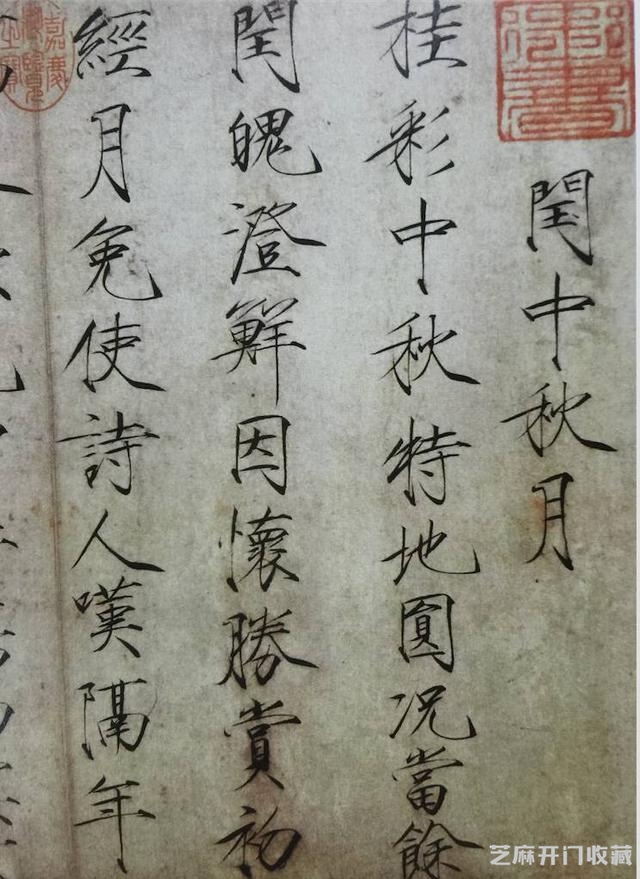 閏中秋月
桂彩中秋特地圓况當餘
閏魄澄鮮因懷勝賞初
經月免使詩人嘆隔年
嘉慶
芝麻开门收藏